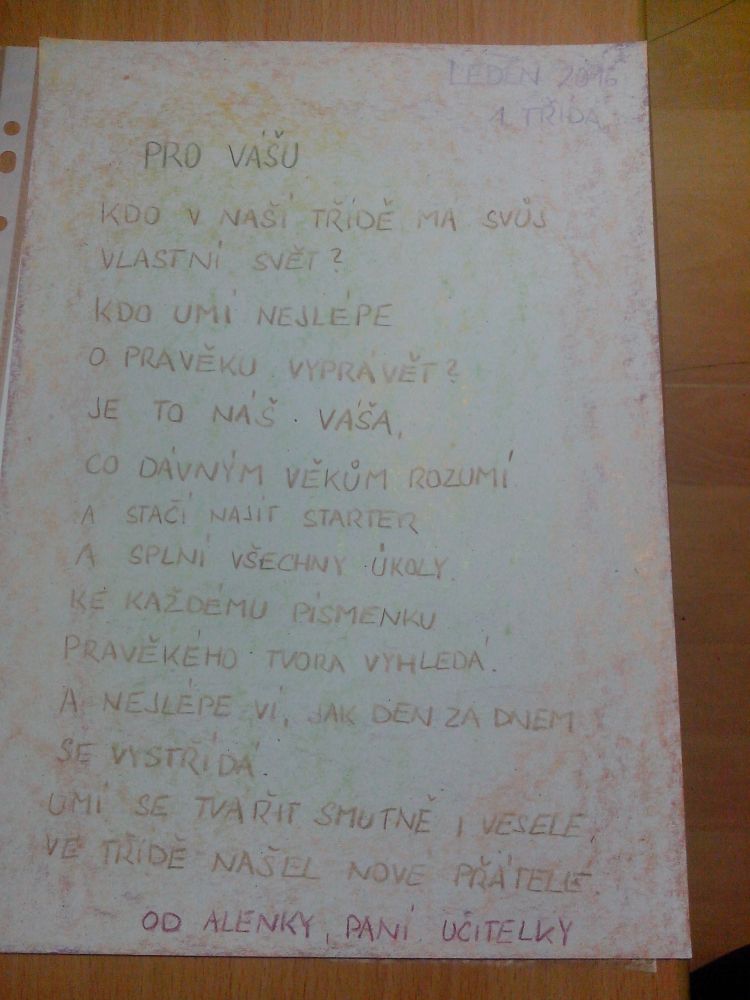 LEDEN 2016
1. TŘÍDA
PRO VÁŠU
KDO V NAŠÍ TŘÍDĚ MÁ SVŮJ
VLASTNÍ SVĚT?
KDO UMÍ NEJLÉPE
O PRAVĚKU VYPRÁVĚT?
JE TO NÁŠ VÁŠA,
CO DÁVNÝM VĚKŮM ROZUMÍ
A STAČÍ NAJÍT STARTER
A SPLNÍ VŠECHNY ÚKOLY.
KE KAŽDÉMU PÍSMENKU
PRAVĚKÉHO TVORA VYHLEDÁ.
A NEJLÉPE VÍ, JAK DEN ZA DNEM
SE VYSTŘÍDÁ.
UMÍ SE TVÁŘIT SMUTNĚ I VESELE,
VE TŘÍDĚ NAŠEL NOVÉ PŘÁTELE.
OD ALENKY, PANÍ UČITELKY